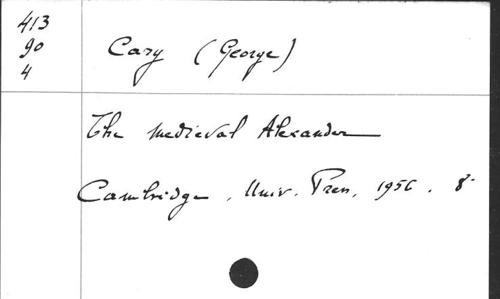 413
90
4
Cary (George)
The medieval Alexander
Cambridge, Univ. Press, 1956. 8°